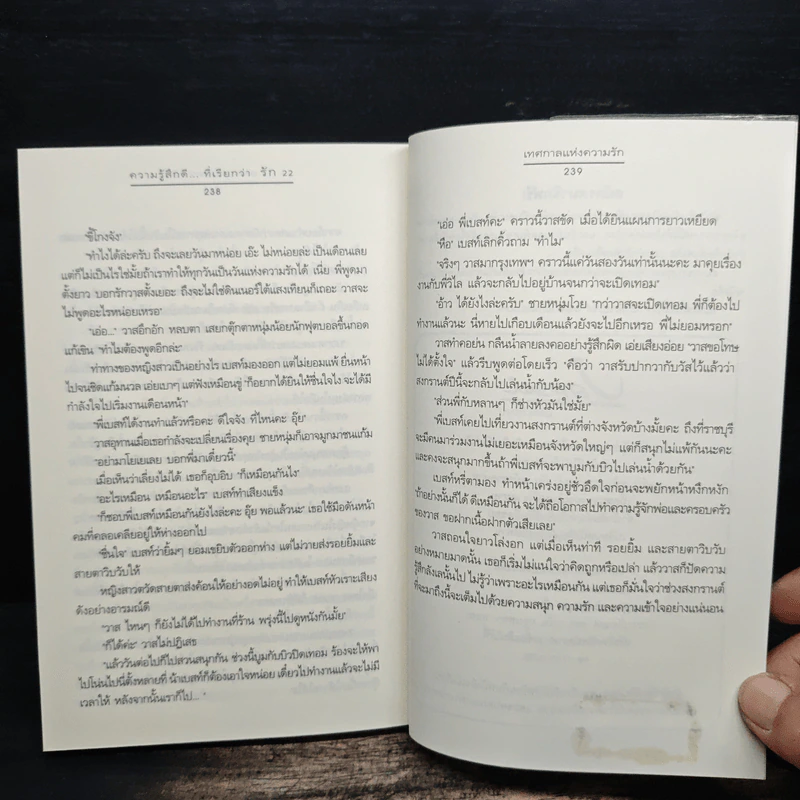 ความรู้สึกดี... ที่เรียกว่า.. รัก 22
238
"ขี้โกงจัง"
"ทำไงได้ล่ะครับ ถึงจะเลยวันมาหน่อย เอ๊ะ ไม่หน่อยล่ะ เป็นเดือนเลย
แต่ก็ไม่เป็นไรใช่มั้ยถ้าเราทำให้ทุกวันเป็นวันแห่งความรักได้ เนี่ย พี่พูดมา
ตั้งยาว บอกรักวาสตั้งเยอะ ถึงจะไม่ใช่ดินเนอร์ใต้แสงเทียนก็เถอะ วาสจะ
ไม่พูดอะไรหน่อยเหรอ"
"เอ่อ..." วาสอึกอัก หลบตา เสยกตุ๊กตาหนุ่มน้อยนักฟุตบอลขึ้นกอด
แก้เขิน "ทำไมต้องพูดอีกล่ะ"
ท่าทางของหญิงสาวเป็นอย่างไร เบสท์มองออก แต่ไม่ยอมแพ้ ยื่นหน้า
ไปจนชิดแก้มนวล เอ่ยเบาๆ แต่ฟังเหมือนขู่ "ก็อยากได้ยินให้ชื่นใจไง จะได้มี
กำลังใจไปเริ่มงานเดือนหน้า"
"พี่เบสท์ได้งานทำแล้วหรือคะ ดีใจจัง ที่ไหนคะ อุ๊ย"
วาสอุทานเมื่อเธอกำลังจะเปลี่ยนเรื่องคุย ชายหนุ่มก็เอาจมูกมาชนแก้ม
"อย่ามาโยเยเลย บอกพี่มาเดี๋ยวนี้"
เมื่อเห็นว่าเลี่ยงไม่ได้ เธอก็อุบอิบ "ก็เหมือนกันไง"
"อะไรเหมือน เหมือนอะไร" เบสท์ทำเสียงแข็ง
"ก็ชอบพี่เบสท์เหมือนกันยังไงล่ะคะ อุ๊ย พอแล้วนะ" เธอใช้มือดันหน้า
คมที่คลอเคลียอยู่ให้ห่างออกไป
"ชื่นใจ" เบสท์ว่ายิ้มๆ ยอมเขยิบตัวออกห่าง แต่ไม่วายส่งรอยยิ้มและ
สายตาวิบวับให้
หญิงสาวตวัดสายตาส่งค้อนให้อย่างอดไม่อยู่ ทำให้เบสท์หัวเราะเสียง
ดังอย่างอารมณ์ดี
"วาส ไหนๆ ก็ยังไม่ได้ไปทำงานที่ร้าน พรุ่งนี้ไปดูหนังกันมั้ย"
"ก็ได้ค่ะ" วาสไม่ปฏิเสธ
"แล้ววันต่อไปก็ไปสวนสนุกกัน ช่วงนี้บูมกับบิวปิดเทอม ร้องจะให้พา
ไปโน่นไปนี่ตั้งหลายที่ น้าเบสท์ก็ต้องเอาใจหน่อย เดี๋ยวไปทำงานแล้วจะไม่มี
เวลาให้ หลังจากนั้นเราก็ไป... "
เทศกาลแห่งความรัก
239
"เอ่อ พี่เบสท์คะ" คราวนี้วาสขัด เมื่อได้ยินแผนการยาวเหยียด
"หือ" เบสท์เลิกคิ้วถาม "ทำไม"
"จริงๆ วาสมากรุงเทพฯ คราวนี้แค่วันสองวันเท่านั้นนะคะ มาคุยเรื่อง
งานกับพี่วิไล แล้วจะกลับไปอยู่บ้านจนกว่าจะเปิดเทอม"
"อ้าว ได้ยังไงล่ะครับ" ชายหนุ่มโวย "กว่าวาสจะเปิดเทอม พี่ก็ต้องไป
ทำงานแล้วนะ นี่หายไปเกือบเดือนแล้วยังจะไปอีกเหรอ พี่ไม่ยอมหรอก"
วาสทำคอย่น กลืนน้ำลายลงคออย่างรู้สึกผิด เอ่ยเสียงอ่อย "วาสขอโทษ
ไม่ได้ตั้งใจ" แล้วรีบพูดต่อโดยเร็ว "คือว่า วาสรับปากวากับวัสไว้แล้วว่า
สงกรานต์ปีนี้จะกลับไปเล่นน้ำกับน้อง"
"ส่วนพี่กับหลานๆ ก็ช่างหัวมันใช่มั้ย"
"พี่เบสท์เคยไปเที่ยวงานสงกรานต์ที่ต่างจังหวัดบ้างมั้ยคะ ถึงที่ราชบุรี
จะมีคนมาร่วมงานไม่เยอะเหมือนจังหวัดใหญ่ๆ แต่ก็สนุกไม่แพ้กันนะคะ
และคงจะสนุกมากขึ้นถ้าพี่เบสท์จะพาบูมกับบิวไปเล่นน้ำด้วยกัน"
เบสท์หรี่ตามอง ทำหน้าเคร่งอยู่ชั่วอึดใจก่อนจะพยักหน้าหงึกหงัก
"ถ้าอย่างนั้นก็ได้ ดีเหมือนกัน จะได้ถือโอกาสไปทำความรู้จักพ่อและครอบครัว
ของวาส ขอฝากเนื้อฝากตัวเสียเลย"
วาสถอนใจยาวโล่งอก แต่เมื่อเห็นท่าที รอยยิ้ม และสายตาวิบวับ
อย่างหมายมาดนั้น เธอก็เริ่มไม่แน่ใจว่าคิดถูกหรือเปล่า แล้ววาสก็ปัดความ
รู้สึกลังเลนั้นไป ไม่รู้ว่าเพราะอะไรเหมือนกัน แต่เธอก็มั่นใจว่าช่วงสงกรานต์
ที่จะมาถึงนี้จะเต็มไปด้วยความสนุก ความรัก และความเข้าใจอย่างแน่นอน